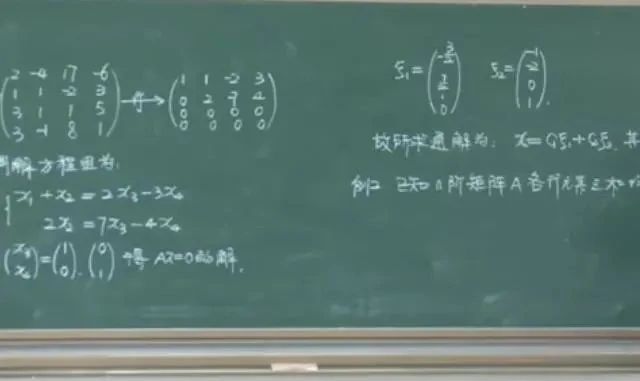 2 -4 17 -6
1 1 -2 3
3 1 1 5
3 -1 8 1
→
1 1 -2 3
0 2 7 4
0 0 0 0
0 0 0 0
同解方程组为:
x₁ + x₂ = 2x₃ - 3x₄
2x₂ = 7x₃ - 4x₄
(x₃ x₄) = (1 0), (0 1) 得 Ax=0的解.
ξ₁ = (-3/2 7/2 1 0) ξ₂ = (-1 -2 0 1).
故所求通解为: x = C₁ξ₁ + C₂ξ₂, 其
例2 已知 n 阶矩阵 A 各行元素之和